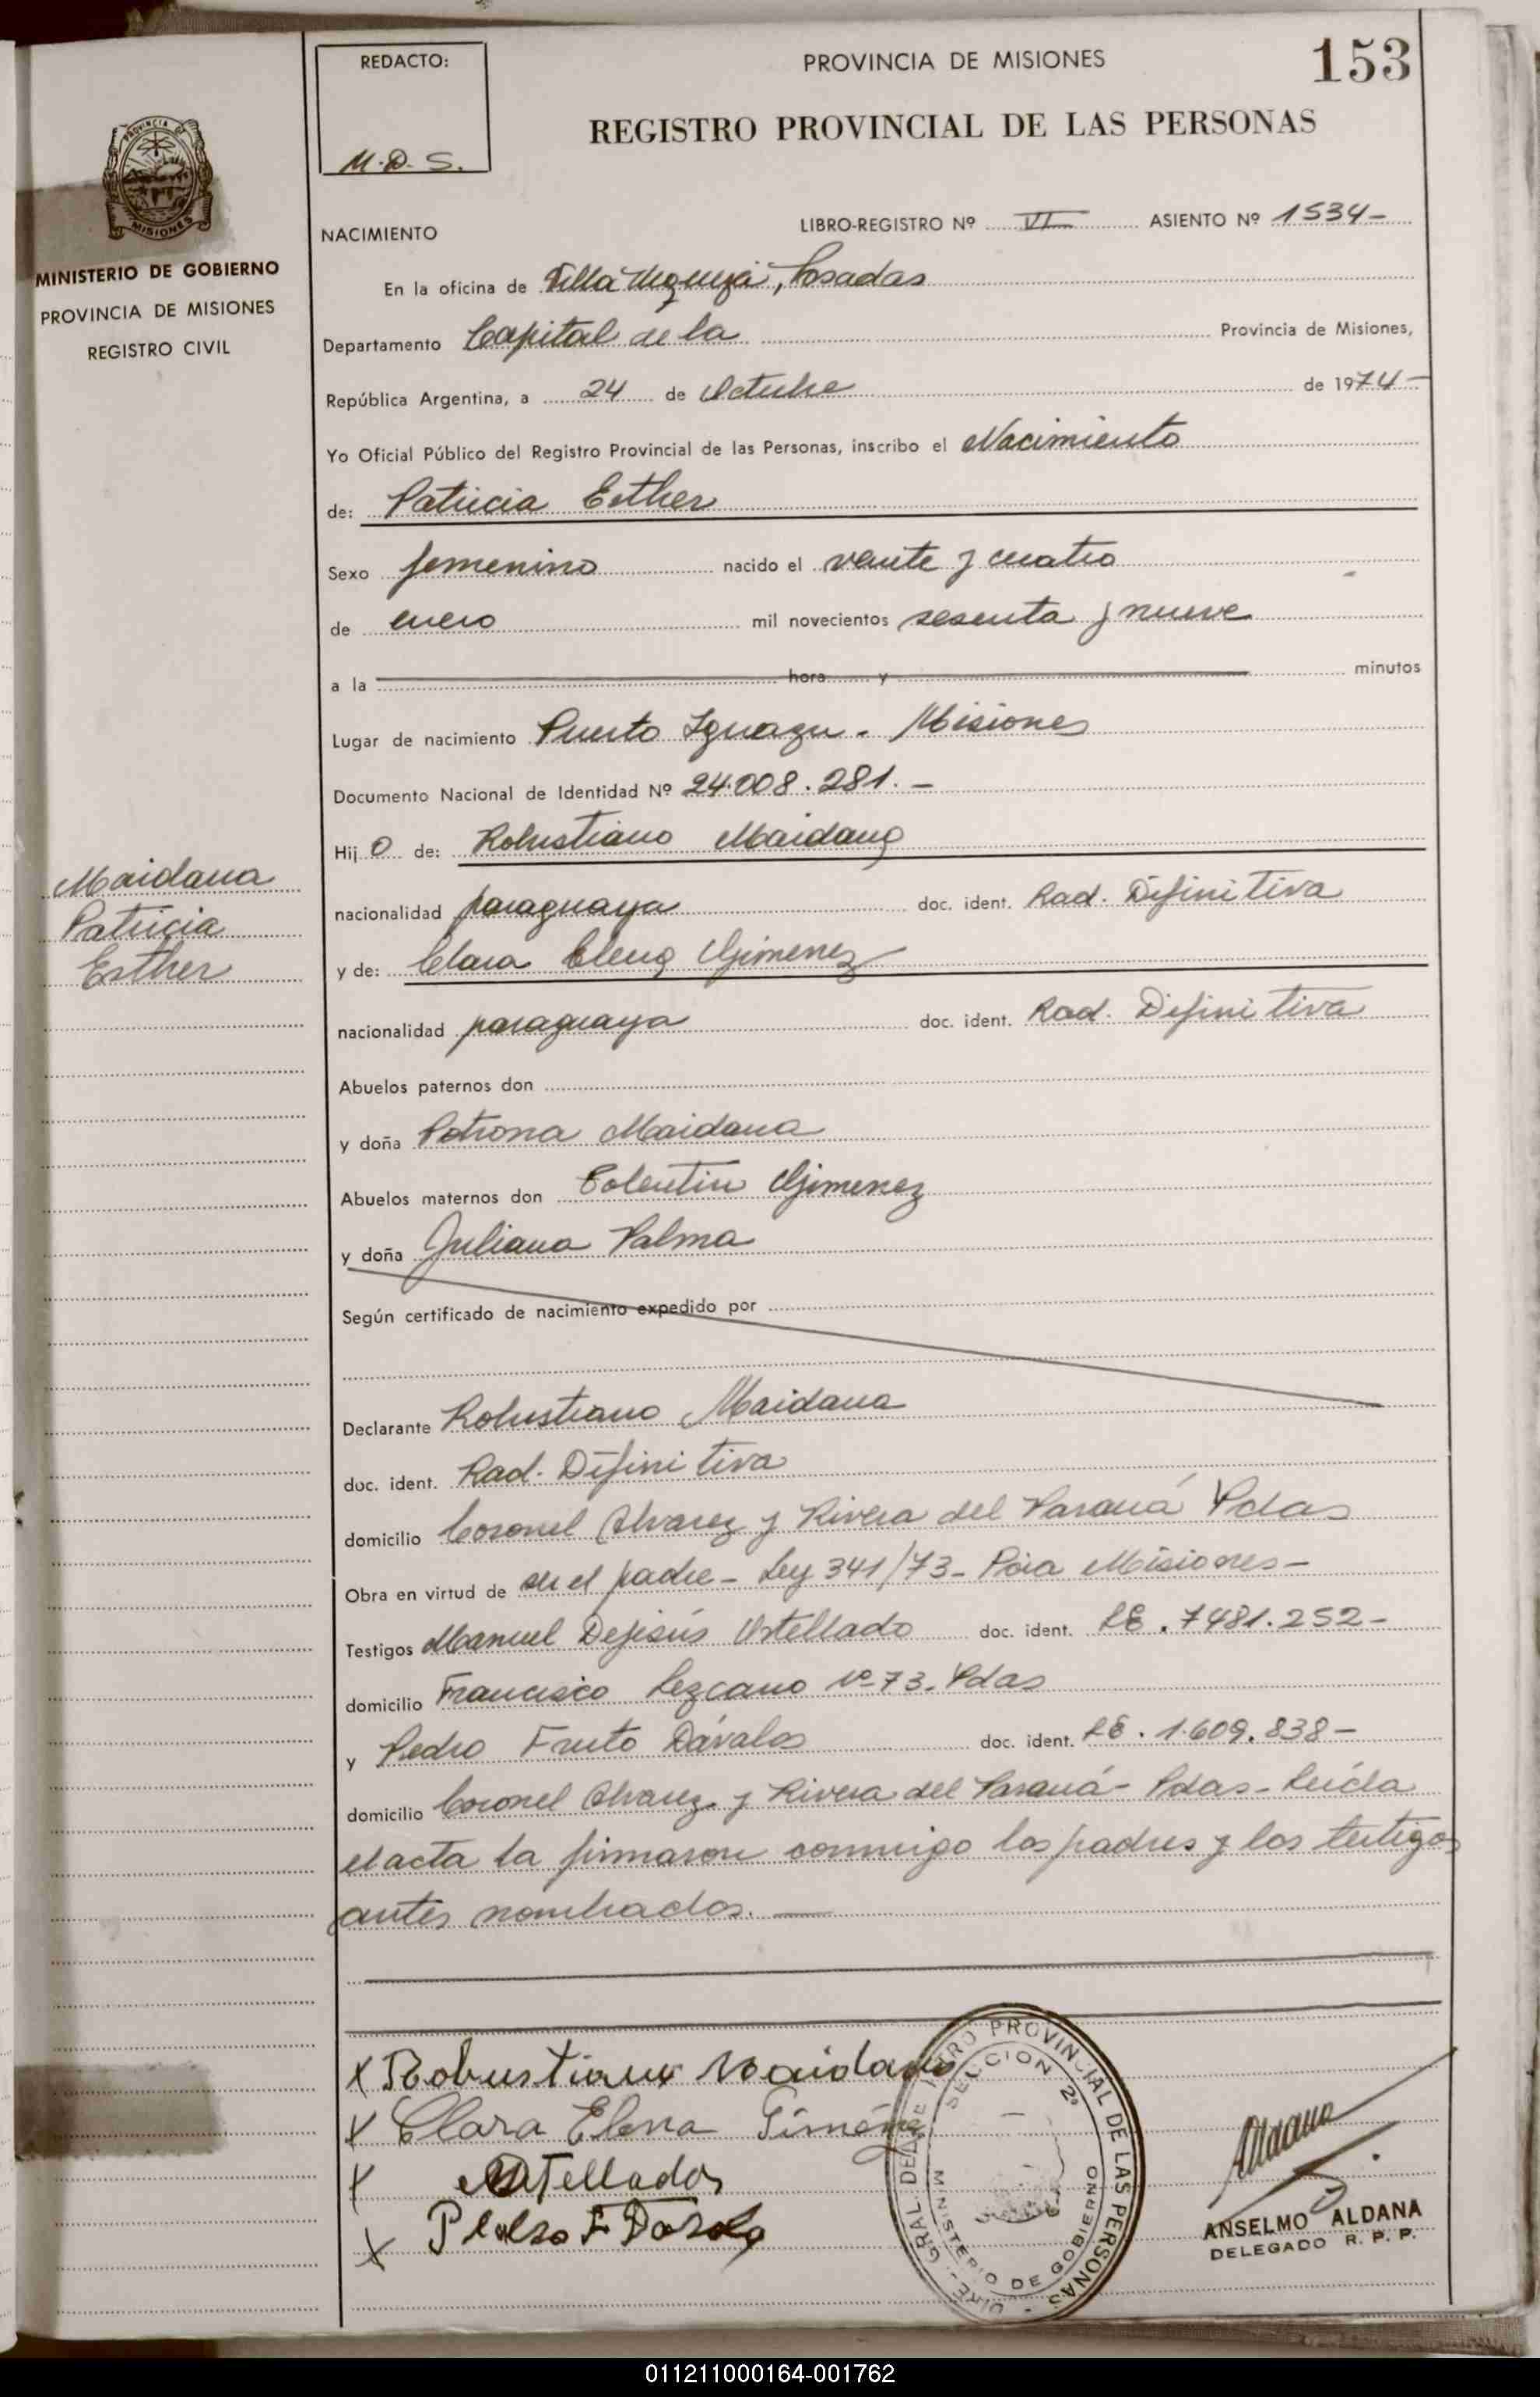 153
REDACTO:
M.D.S.
PROVINCIA DE MISIONES
REGISTRO PROVINCIAL DE LAS PERSONAS
PROVINCIA DE
MISIONES
MINISTERIO DE GOBIERNO
PROVINCIA DE MISIONES
REGISTRO CIVIL
NACIMIENTO
LIBRO-REGISTRO Nº VI ASIENTO Nº 1534-
En la oficina de Villa Urquiza, Posadas
Departamento Capital de la Provincia de Misiones,
República Argentina, a 24 de Octubre de 1974-
Yo Oficial Público del Registro Provincial de las Personas, inscribo el Nacimiento
de: Patricia Esther
Sexo femenino nacido el veinte y cuatro
de enero mil novecientos sesenta y nueve
a la hora y minutos
Lugar de nacimiento Puerto Iguazu. Misiones
Documento Nacional de Identidad Nº 24.008.281.-
Hij o de: Robustiano Maidana
nacionalidad paraguaya doc. ident. Rad. Difinitiva
y de: Clara Elena Gimenez
nacionalidad paraguaya doc. ident. Rad. Difinitiva
Maidana
Patricia
Esther
Abuelos paternos don
y doña Petrona Maidana
Abuelos maternos don Gimenez
y doña Juliana Palma
Según certificado de nacimiento expedido por
Declarante Robustiano Maidana
doc. ident. Rad. Difinitiva
domicilio Coronel Alvarez y Rivera del Paraná Pdas
Obra en virtud de ser el padre - Ley 341/73- Pcia Misiones-
Testigos Manuel Dejesús Ortellado doc. ident. LE. 7481.252-
domicilio Francisco Lezcano Nº 73. Pdas
y Pedro Fruto Dávalos doc. ident. LE. 1.609.838-
domicilio Coronel Alvarez y Rivera del Paraná - Pdas - Leída
el acta la firmaron conmigo los padres y los testigos
antes nombrados.
x Robustiano Maidana
x Clara Elena Giménez
x Ortellado
x Pedro F Davalo
DIRE. GRAL. DE REGISTRO PROVINCIAL DE LAS PERSONAS
SECCION 2ª
MINISTERIO DE GOBIERNO
Aldana
ANSELMO ALDANA
DELEGADO R. P. P.
011211000164-001762